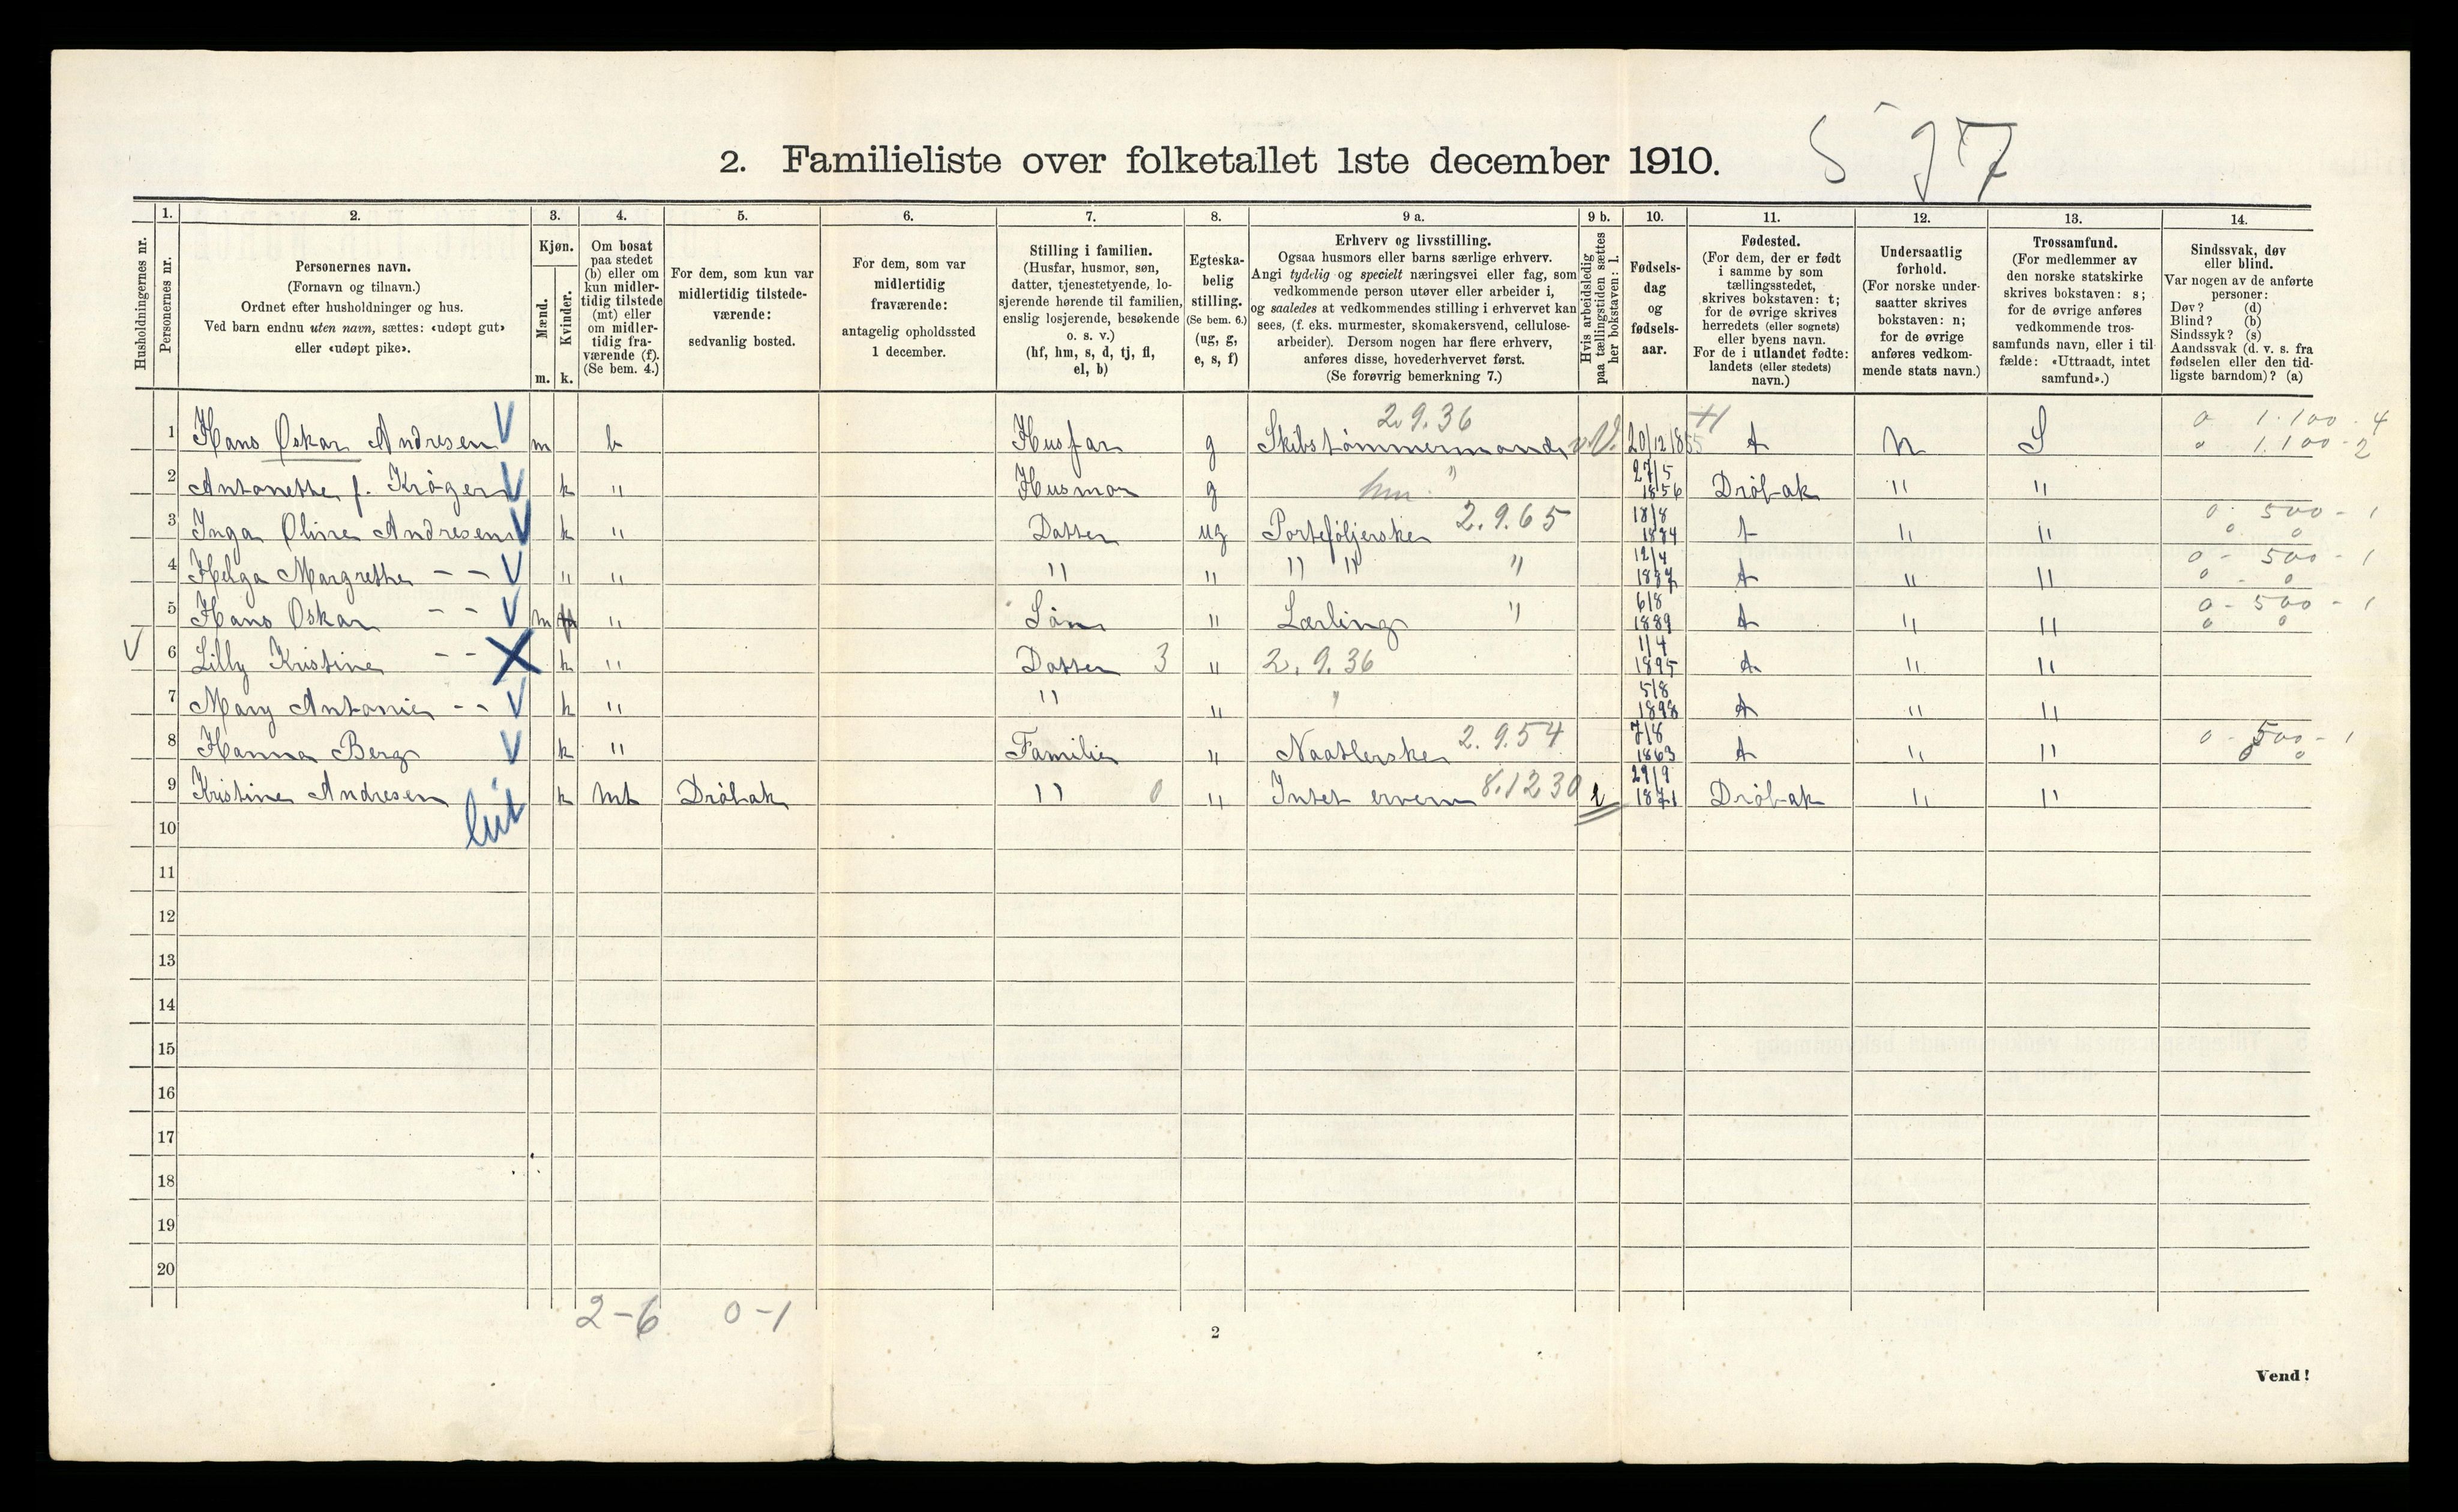 2. Familieliste over folketallet 1ste december 1910.
597
Husholdningernes nr.
1. Personernes nr.
2. Personernes navn. (Fornavn og tilnavn.) Ordnet efter husholdninger og hus. Ved barn endnu uten navn, sættes: «udøpt gut» eller «udøpt pike».
3. Kjøn. Mænd. m. Kvinder. k.
4. Om bosat paa stedet (b) eller om kun midlertidig tilstede (mt) eller om midlertidig fraværende (f). (Se bem. 4.)
5. For dem, som kun var midlertidig tilstedeværende: sedvanlig bosted.
6. For dem, som var midlertidig fraværende: antagelig opholdssted 1 december.
7. Stilling i familien. (Husfar, husmor, søn, datter, tjenestetyende, losjerende hørende til familien, enslig losjerende, besøkende o. s. v.) (hf, hm, s, d, tj, fl, el, b)
8. Egteskabelig stilling. (Se bem. 6.) (ug, g, e, s, f)
9 a. Erhverv og livsstilling. Ogsaa husmors eller barns særlige erhverv. Angi tydelig og specielt næringsvei eller fag, som vedkommende person utøver eller arbeider i, og saaledes at vedkommendes stilling i erhvervet kan sees, (f. eks. murmester, skomakersvend, cellulose-arbeider). Dersom nogen har flere erhverv, anføres disse, hovederhvervet først. (Se forøvrig bemerkning 7.)
9 b. Hvis arbeidsledig paa tællingstiden sættes her bokstaven: l.
10. Fødselsdag og fødselsaar.
11. Fødested. (For dem, der er født i samme by som tællingsstedet, skrives bokstaven: t; for de øvrige skrives herredets (eller sognets) eller byens navn. For de i utlandet fødte: landets (eller stedets) navn.)
12. Undersaatlig forhold. (For norske undersaatter skrives bokstaven: n; for de øvrige anføres vedkommende stats navn.)
13. Trossamfund. (For medlemmer av den norske statskirke skrives bokstaven: s; for de øvrige anføres vedkommende trossamfunds navn, eller i tilfælde: «Uttraadt, intet samfund».)
14. Sindssvak, døv eller blind. Var nogen av de anførte personer: Døv? (d) Blind? (b) Sindssyk? (s) Aandssvak (d. v. s. fra fødselen eller den tidligste barndom)? (a)
1 Hans Oskar Andresen V m b Husfar g Skibstømmermand 2.9.36 20/12/1855 t N S 0 1.100 - 4 0 1.100 - 2
2 Antonette f. Krøger V k " Husmor g hm. " 27/5 1856 Drøbak " "
3 Inga Olive Andresen V k " Datter ug Porteføljerske 2.9.65 18/8 1884 t " " 0 - 500 - 1 0 0
4 Helga Margrethe - - V " " " " " " " 12/4 1887 t " " 0 - 500 - 1 0 - 0
5 Hans Oskar - - V m " Søn " Lærling " 6/8 1889 t " " 0 - 500 - 1 0 0
V 6 Lilly Kristine - - X k " Datter 3 " 2.9.36 1/4 1895 t " "
7 Mary Antonie - - V k " " " " 5/8 1898 t " "
8 Hanna Berg V k " Familie " Naatlerske 2.9.54 7/8 1863 t " " 0 - 500 - 1 0 0
9 Kristine Andresen k mt Drøbak " 0 " Intet erverv 8.1230 l 29/9 1871 Drøbak " "
10
11
12
13
14
15
16
17
18
19
20
2-6 0-1
2
Vend!